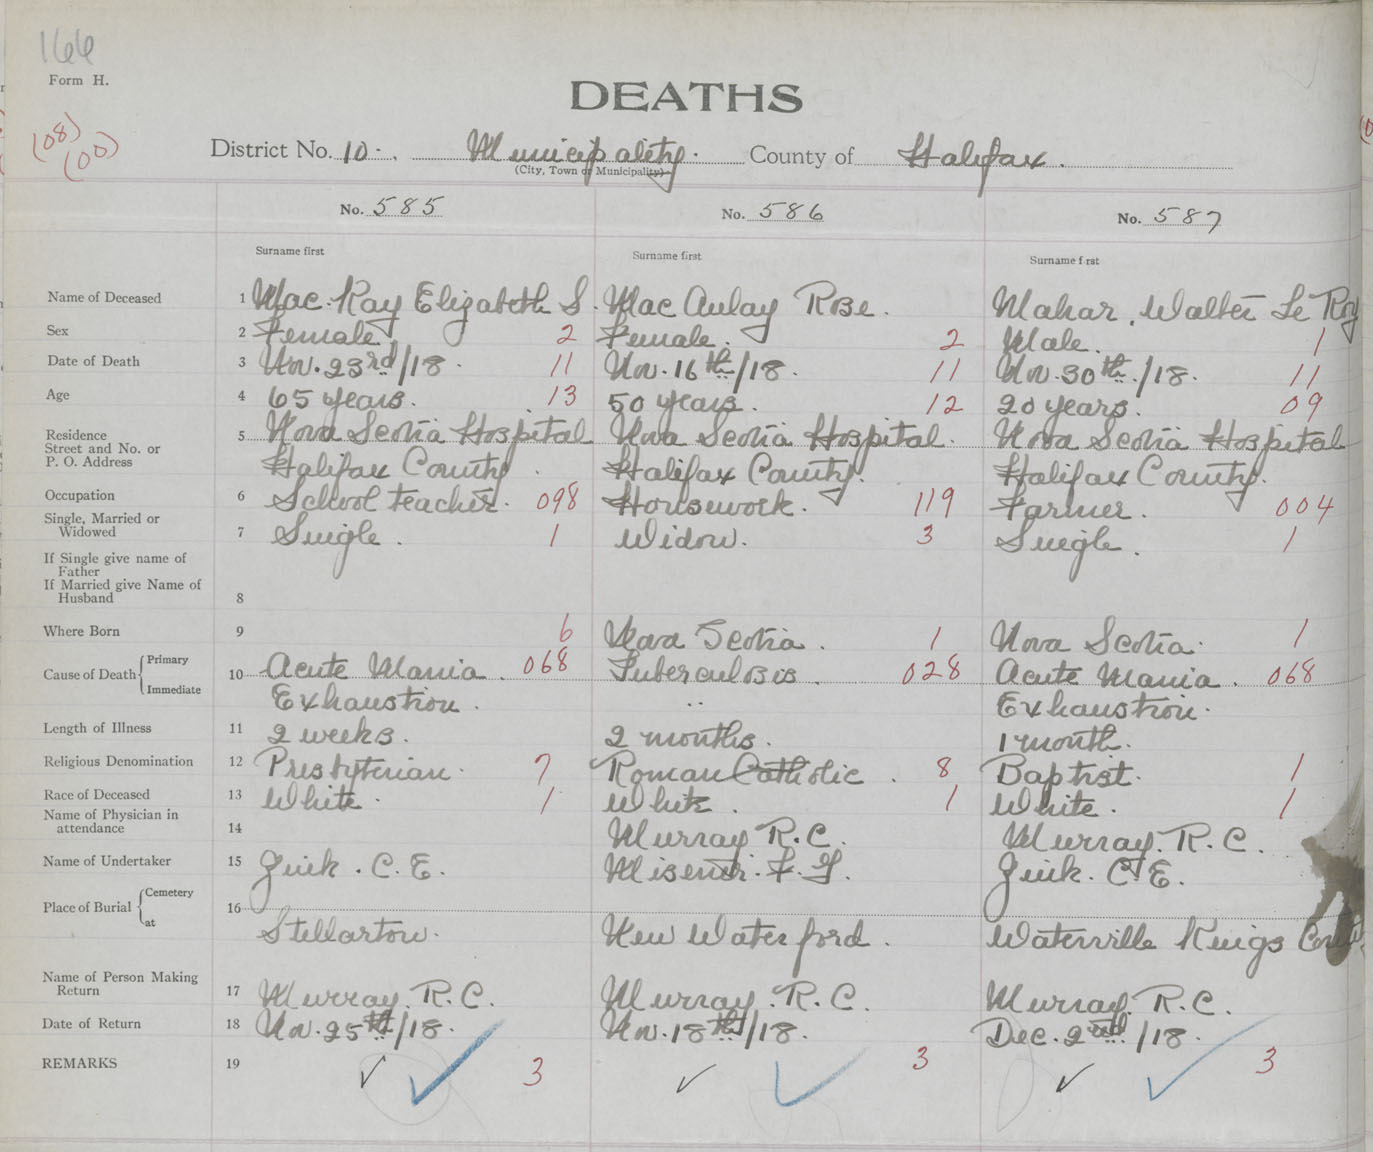 166
Form H.
DEATHS
(08)
(00)
District No. 10. Municipality. County of Halifax.
(City, Town or Municipality)
No. 585 No. 586 No. 587
Surname first Surname first Surname first
Name of Deceased 1 Mac Kay Elizabeth S. Mac Aulay Rose. Mahar, Walter Le Roy
Sex 2 Female 2 Female. 2 Male. 1
Date of Death 3 Nov. 23rd/18. 11 Nov. 16th/18. 11 Nov. 30th./18. 11
Age 4 65 years. 13 50 years. 12 20 years. 09
Residence
Street and No. or
P. O. Address
5 Nova Scotia Hospital Nova Scotia Hospital. Nova Scotia Hospital
Halifax County. Halifax County. Halifax County.
Occupation 6 School teacher. 098 Housework. 119 Farmer. 004
Single, Married or
Widowed 7 Single. 1 Widow. 3 Single. 1
If Single give name of
Father
If Married give Name of
Husband 8
Where Born 9 6 Nova Scotia. 1 Nova Scotia. 1
Cause of Death { Primary
Immediate
10 Acute Mania. 068 Tuberculosis. 028 Acute Mania. 068
Exhaustion. .. Exhaustion.
Length of Illness 11 2 weeks. 2 months. 1 month.
Religious Denomination 12 Presbyterian. 7 Roman Catholic. 8 Baptist. 1
Race of Deceased 13 White. 1 White. 1 White. 1
Name of Physician in
attendance 14 Murray R.C. Murray. R.C.
Name of Undertaker 15 Zink. C. E. Misener. F. G. Zink. C. E.
Place of Burial { Cemetery
at
16 Stellarton. New Waterford. Waterville Kings
Name of Person Making
Return 17 Murray. R.C. Murray. R.C. Murray. R.C.
Date of Return 18 Nov. 25th/18. Nov. 18th/18. Dec. 2nd./18.
REMARKS 19 3 3 3